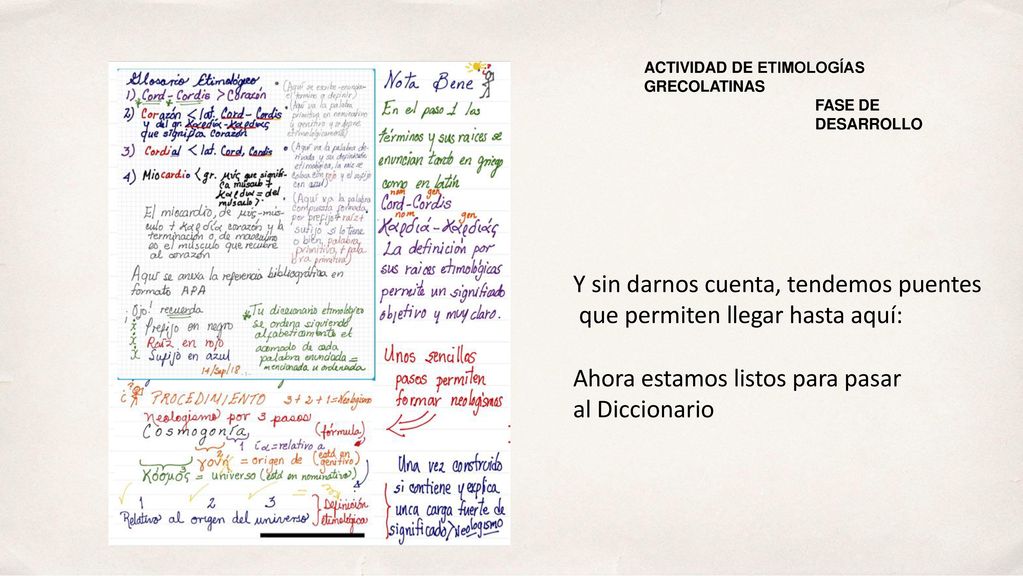 ACTIVIDAD DE ETIMOLOGÍAS
GRECOLATINAS
FASE DE
DESARROLLO
Glosario Etimológico
1) Cord - Cordis > Corazón
2) Corazón < lat. Cord - Cordis
y del gr. Καρδιά - Καρδιάς
que significa corazón
3) Cordial < lat. Cord, Cordis
4) Miocardio < gr. μῦς que signifi-
ca músculo +
καρδια = del
músculo >
El miocardio, de μῦς - mús-
culo + καρδία corazón y la
terminación o, de masculino
es el músculo que recubre
al corazón
(Aquí se escribe - enuncia
el término a definir)
(Aquí va la palabra
primitiva en nominativo
y genitivo y se define
etimológicamente)
(Aquí va la palabra de-
rivada y su definición
etimológica, la raíz se
coloca con rojo y el sufijo
con azul)
(Aquí va la palabra
compuesta formada
por prefijo + raíz +
sufijo si lo tiene
o bien, palabra
primitiva + pala
bra primitiva)
Aquí se anexa la referencia bibliográfica en
formato APA
¡Ojo! recuerda
Prefijo en negro
Raíz en rojo
Sufijo en azul
14/Sep/18
Tu diccionario etimológico
se ordena siguiendo
alfabéticamente el
acomodo de cada
palabra enunciada =
mencionada u ordenada
PROCEDIMIENTO 3+2+1=Neologismo
Neologismo por 3 pasos
Cosmogonía (fórmula)
1 ία = relativo a
γονή = origen de (está en
genitivo)
κόσμος = universo (está en nominativo)
1 2 3
Relativo al origen del universo
Definición
etimológica
Nota Bene
En el paso 1 los
términos y sus raíces se
enuncian tanto en griego
como en latín
nom gen
Cord-Cordis
nom gen
Καρδιά - Καρδιάς
La definición por
sus raíces etimológicas
permite un significado
objetivo y muy claro.
Unos sencillos
pasos permiten
formar neologismos
Una vez construido
si contiene y explica
unca carga fuerte de
significado > Neologismo
Y sin darnos cuenta, tendemos puentes
que permiten llegar hasta aquí:
Ahora estamos listos para pasar
al Diccionario